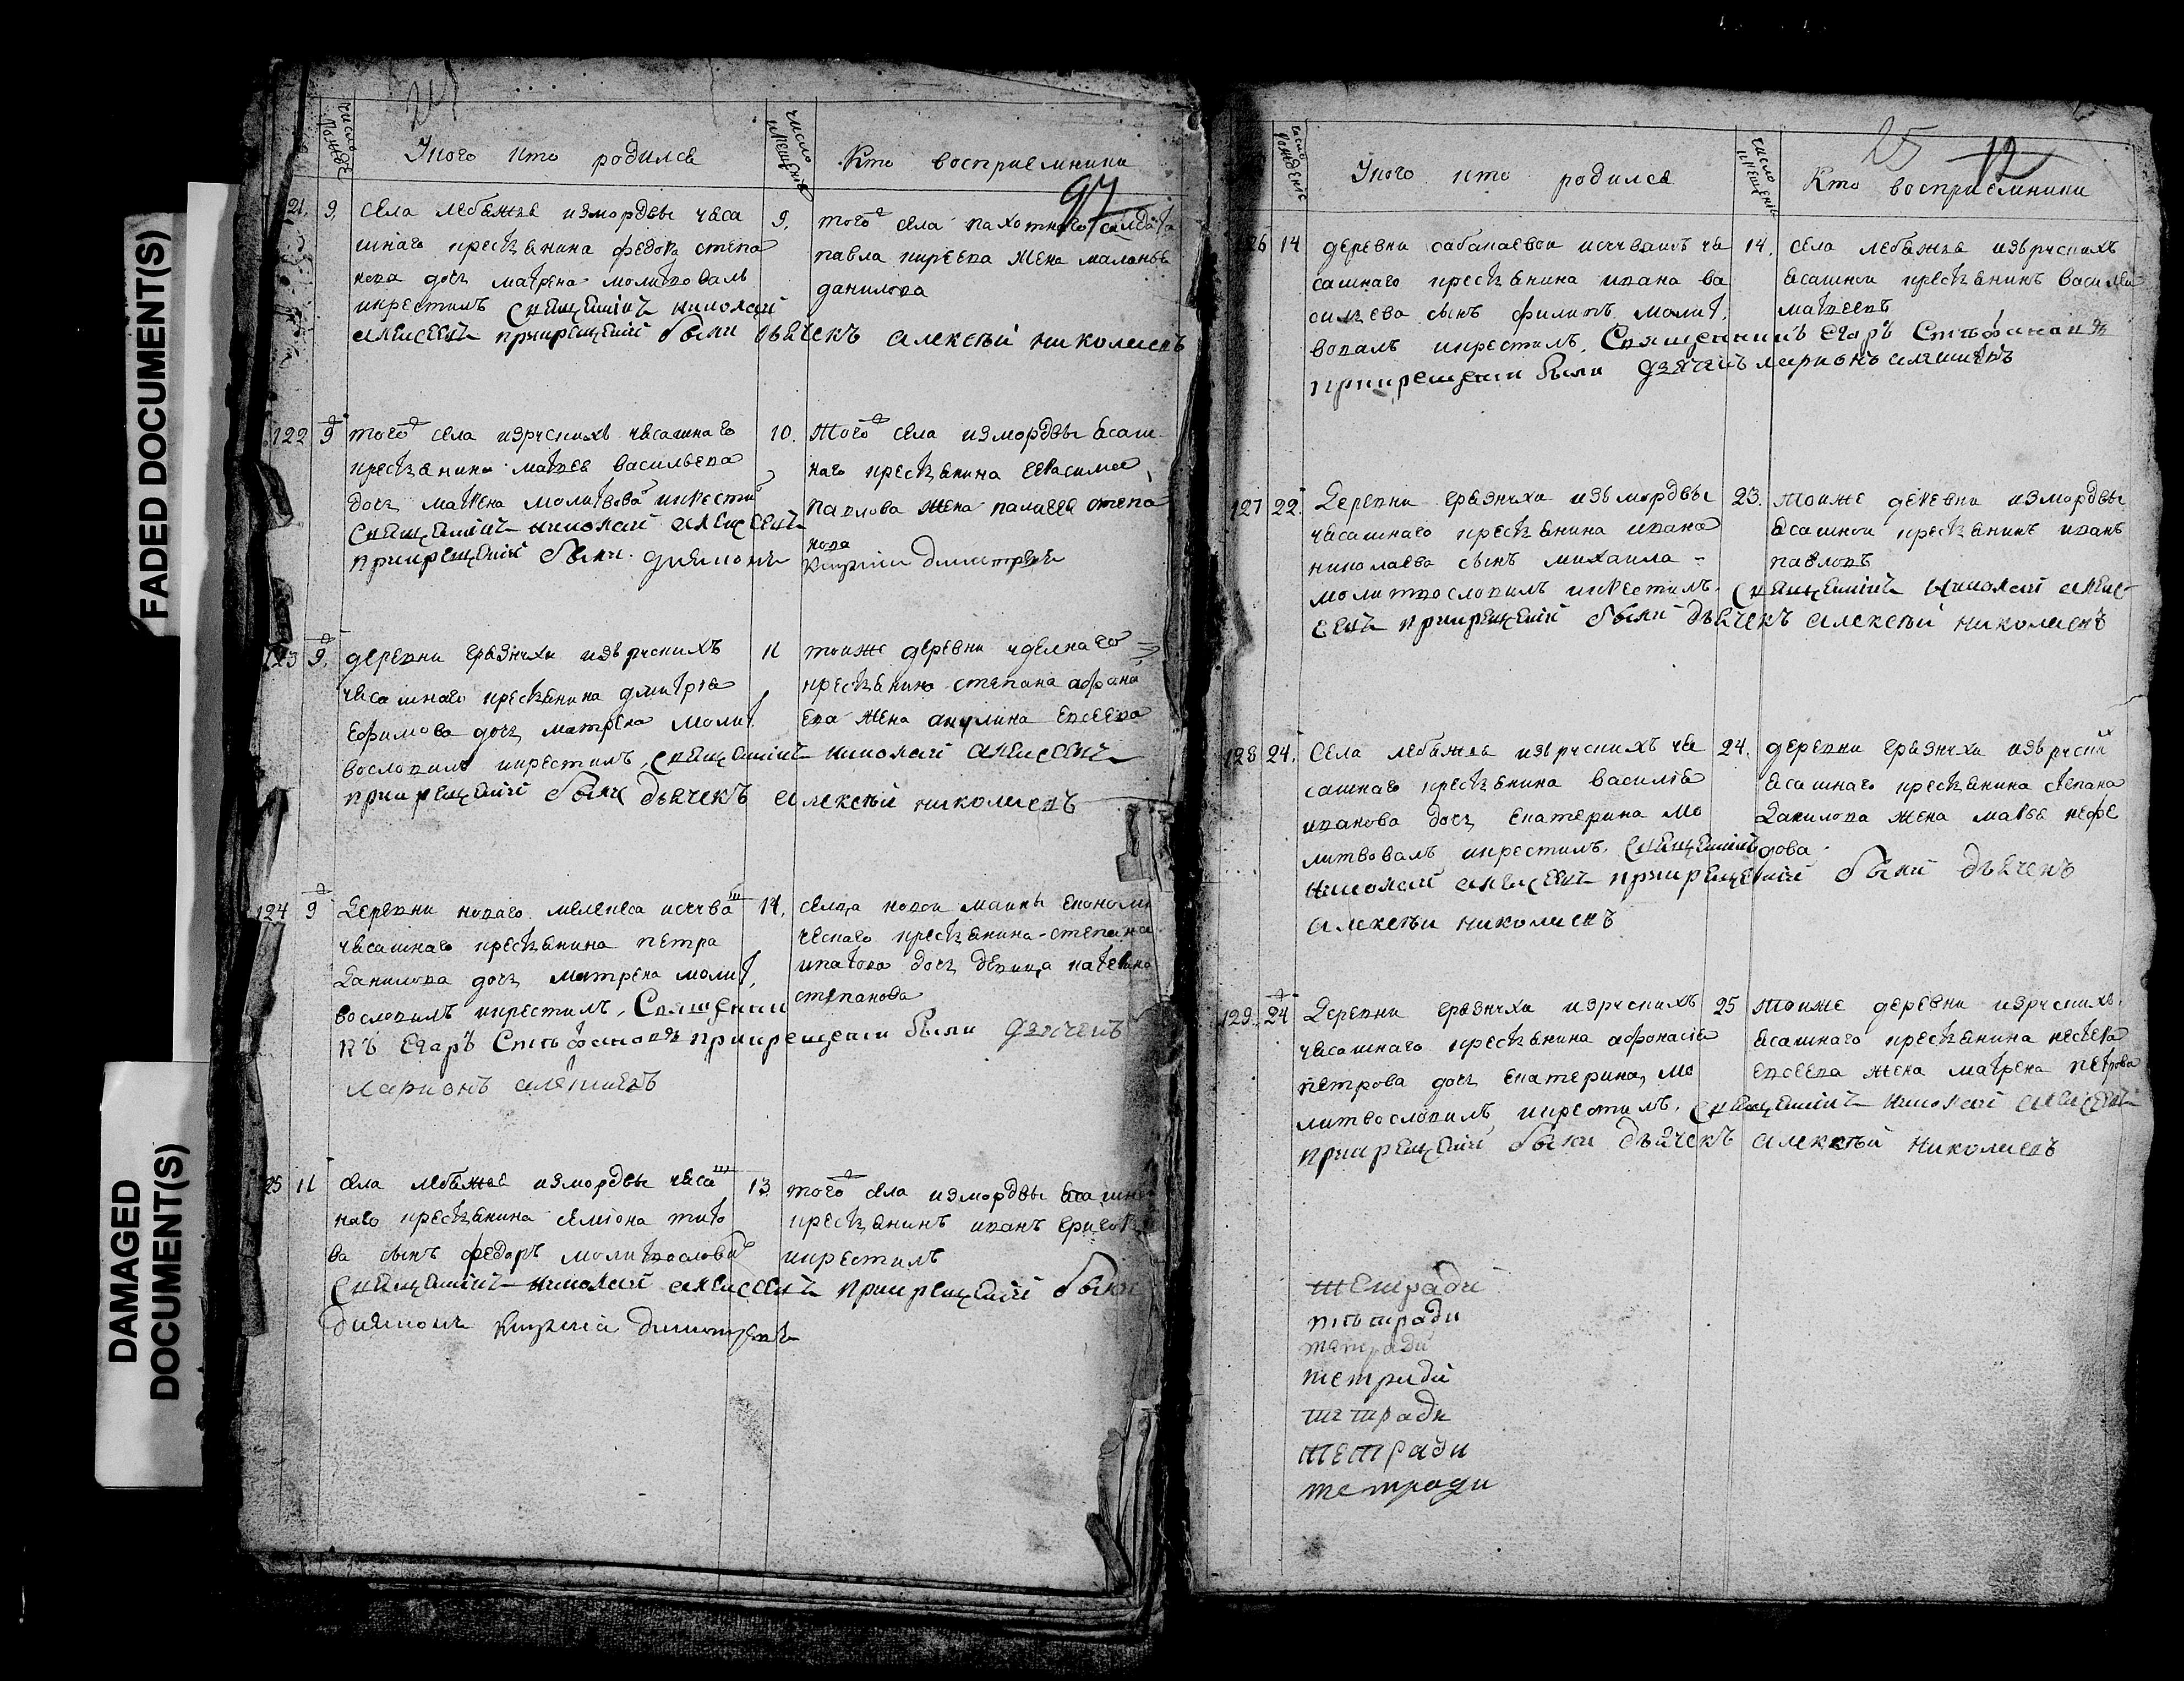 FADED DOCUMENT(S)
DAMAGED
DOCUMENT(S)
24
число рожденiе
Укого кто родился
число крещенiе
Кто восприемники
97
121. 9. села лебяжья измордвы яса
шнаго крестьянина федора степа
нова дочь матрена молитвовалъ
икрестилъ священникъ николай
алексеевъ прикрещенiи былъ дьячекъ алексѣй николаевъ
9. того села пахотнаго салдата
павла киреева жена маланья
данилова
122 9 того села изрускихъ ясашнаго
крестьянина матвея васильева
дочь матрена молитвова икрести
священникъ николай алексеевъ
прикрещенiи былъ диякон
10. того села измордвы ясаш
наго крестьянина герасима
павлова жена палагея степа
нова
димитреевъ
123 9. деревни грязнухи изърускихъ
ясашнаго крестьянина дмитрея
ефимова дочь матрена молит
вословилъ икрестилъ, священникъ николай алексеевъ
прикрещенiи былъ дьячекъ алексѣй николаевъ
11 тоиже деревни уделнаго
крестьянина степана афана
ева жена акулина евсеева
124 9 Деревни новаго мелекеса исчува
ясашнаго крестьянина петра
Данилова дочь матрена молит
вословилъ икрестилъ, Священни
къ Егоръ Стефановъ прикрещении были дьячекъ
ларионъ
14. селца новой маины економи
ческаго крестьянина степана
ипатова дочь девица катерина
степанова
125 11 села лебяжья измордвы ясаш
наго крестьянина семiона тито
ва сынъ федоръ молитвослови
священникъ николай алексеевъ прикрещенiи былъ
диякон димитреевъ
13 того села измордвы ясашно
крестьянинъ иванъ григорь
икрестилъ
25 12
число рожденiе
Укого кто родился
число крещенiе
Кто восприемники
126 14 деревни сабакаевои исчувашъ яса
сашнаго крестьянина ивана ва
силева сынъ филипъ молит,
вовалъ икрестилъ, Священникъ Егоръ Стефановъ
прикрещении были дьячекъ ларионъ
14. села лебяжья изърускихъ
ясашнои крестьянинъ василеи
матвеевъ
127 22. Деревни грязнухи изъмордвы
ясашнаго крестьянина ивана
николаева сынъ михаила -
молитвословилъ икрестилъ, священникъ николай алек
сеевъ прикрещенiи былъ дьячекъ алексѣй николаевъ
23. тоиже деревни измордвы
ясашнои крестьянинъ иванъ
павловъ
128 24. Села лебяжья изърускихъ яса
сашнаго крестьянина василiя
иванова дочь екатерина мо
литвовалъ икрестилъ, священникъ
николай алексеевъ прикрещенiи былъ дьячекъ
алексѣи николаевъ
24. деревни грязнухи изъруски
ясашнаго крестьянина степана
Данилова жена марья нефе
дова
129. 24 Деревни грязнухи изрускихъ
ясашнаго крестьянина афонасiя
петрова дочь екатерина, мо
литвословилъ икрестилъ, священникъ николай алексеевъ
прикрещенiи былъ дьячекъ алексѣй николаевъ
25 тоиже деревни изрускихъ
ясашнаго крестьянина нестера
евсеева жена матрена петрова
тетради
тетради
тетради
тетради
тетради
тетради
тетради